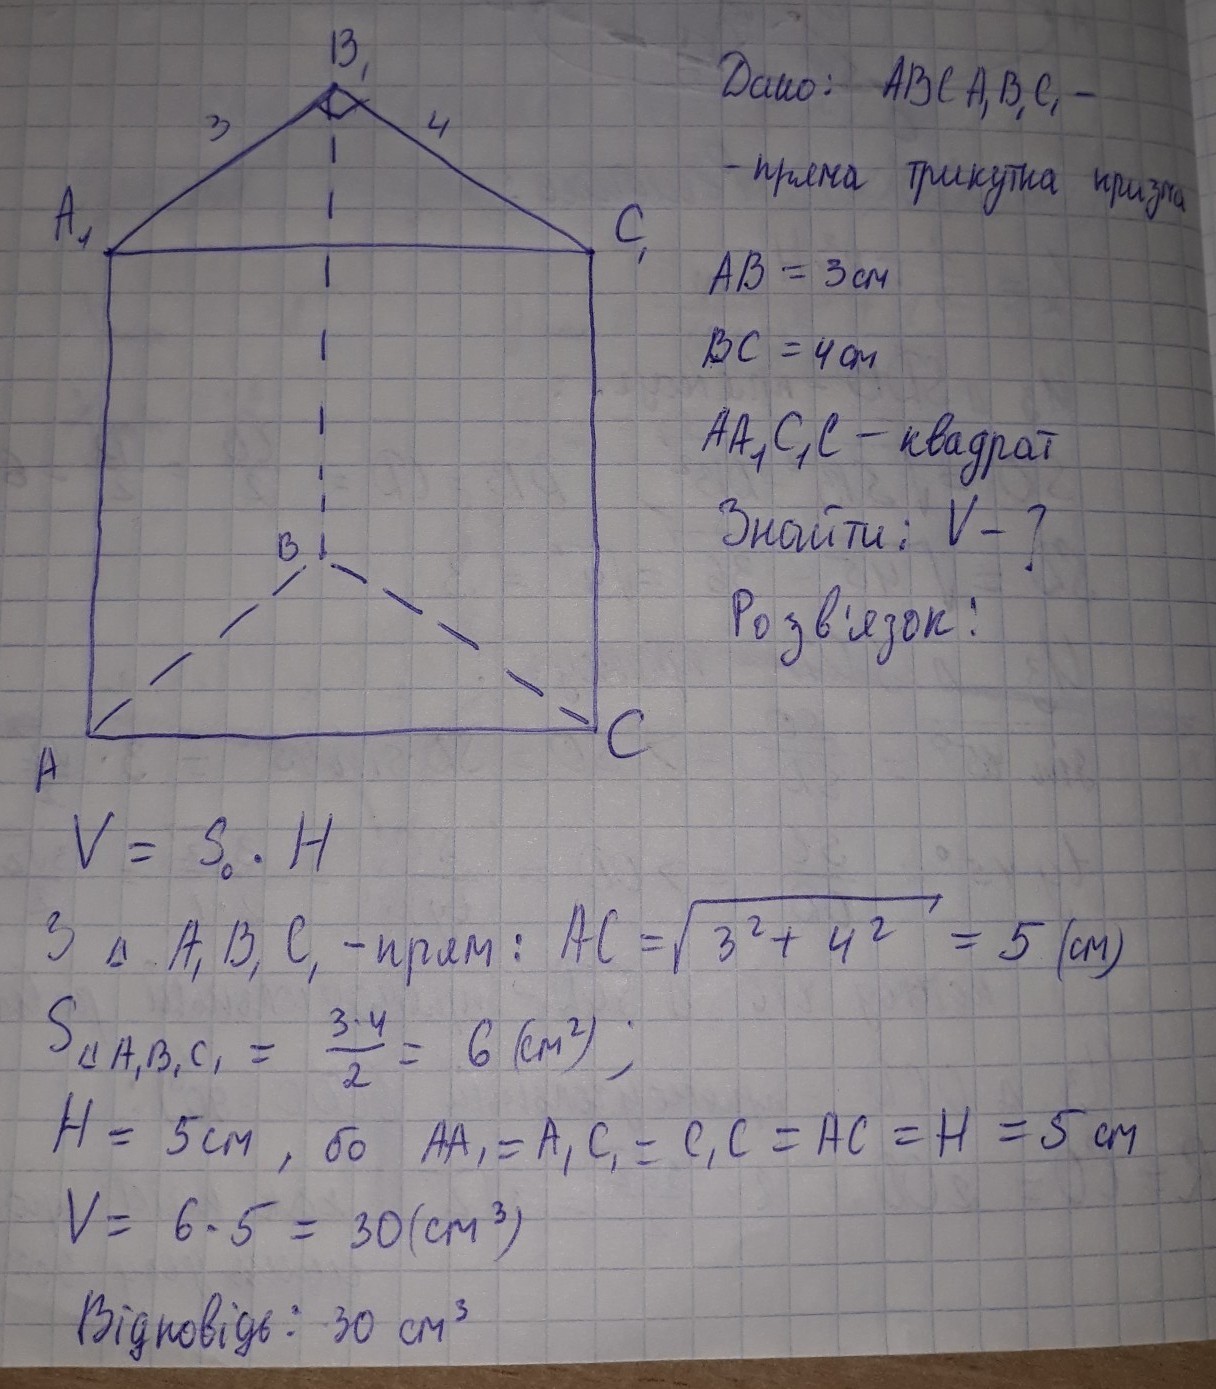 B₁
3
4
A₁
C₁
B
A
C
Дано: ABCA₁B₁C₁ -
- пряма трикутна призма
AB = 3 см
BC = 4 см
AA₁C₁C - квадрат
Знайти: V - ?
Розв'язок:
V = S₀ · H
З Δ A₁B₁C₁ - прям: AC = √(3² + 4²) = 5 (см)
S Δ A₁B₁C₁ = 3·4/2 = 6 (см²);
H = 5 см, бо AA₁ = A₁C₁ = C₁C = AC = H = 5 см
V = 6 · 5 = 30 (см³)
Відповідь: 30 см³